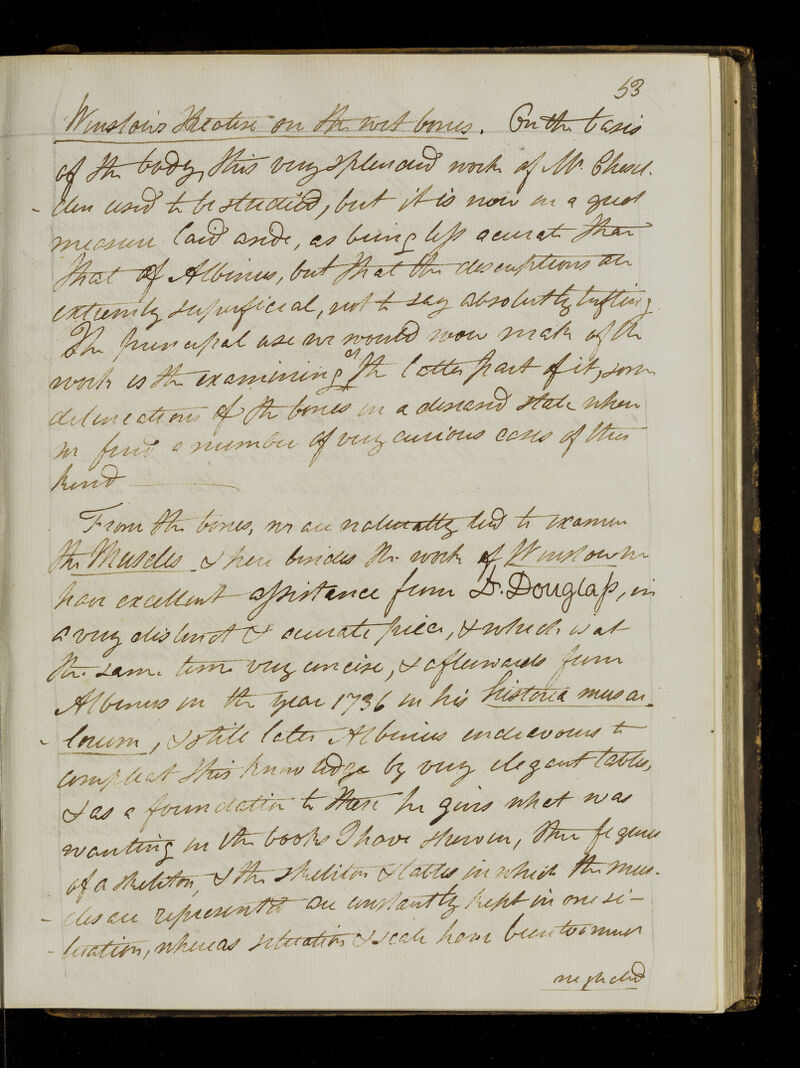 53
Winslow's treatise on the wet bones. On the basis
of the body, this very splendid work of Mr. Chesel-
den used to be studied, but it is now in a great
measure laid aside, as being less acurate than
that of Albinus, but that the descriptions are
extremely superficial, not to say absolutely trifling
The principal use we would now make of the
work is the examining at the latter part of it, some
delineations of the bones in a diseased state when
we find a number of very curious cases of this
kind
From the bones, we are naturally led to examine
the Muscles & here besides the work of Winslow we
have excellent assistance from Dr. Douglass, in
a very distinct & acurate piece, & which is at
the same time very concise, & afterwards from
Albinus in the year 1736 in his historia muscu-
lorum, & still later Albinus endeavours to
compleat this knowledge by very elegant tables,
& as a foundation to these he gives what was
wanting in the books I have shewn, three figures
of a skeleton, & the skeliton & tables in which the mus-
cles are represented are constantly kept in one si-
tuation, whereas situation & scale have been too much
neglected